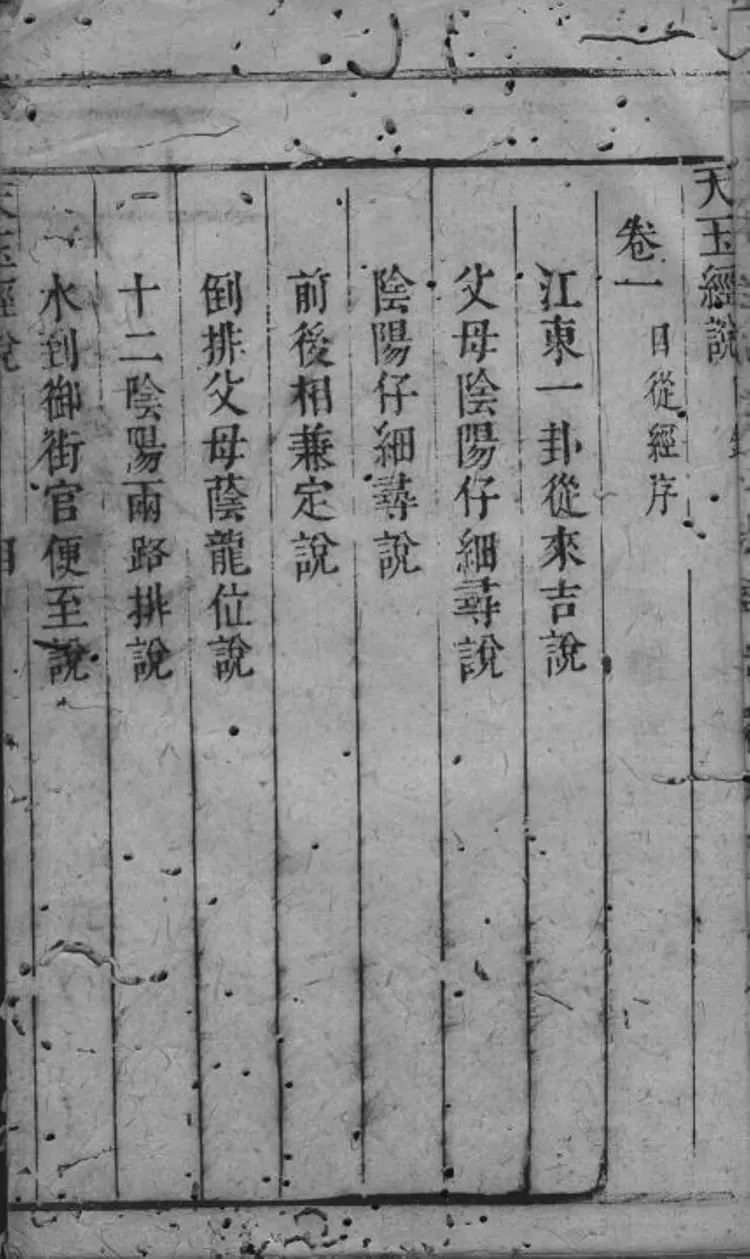 天玉經說
卷一
目從經序
江東一卦從來吉說
父母陰陽仔細尋說
陰陽仔細尋說
前後相兼定說
倒排父母蔭龍位說
十二陰陽兩路排說
水到御街官便至說